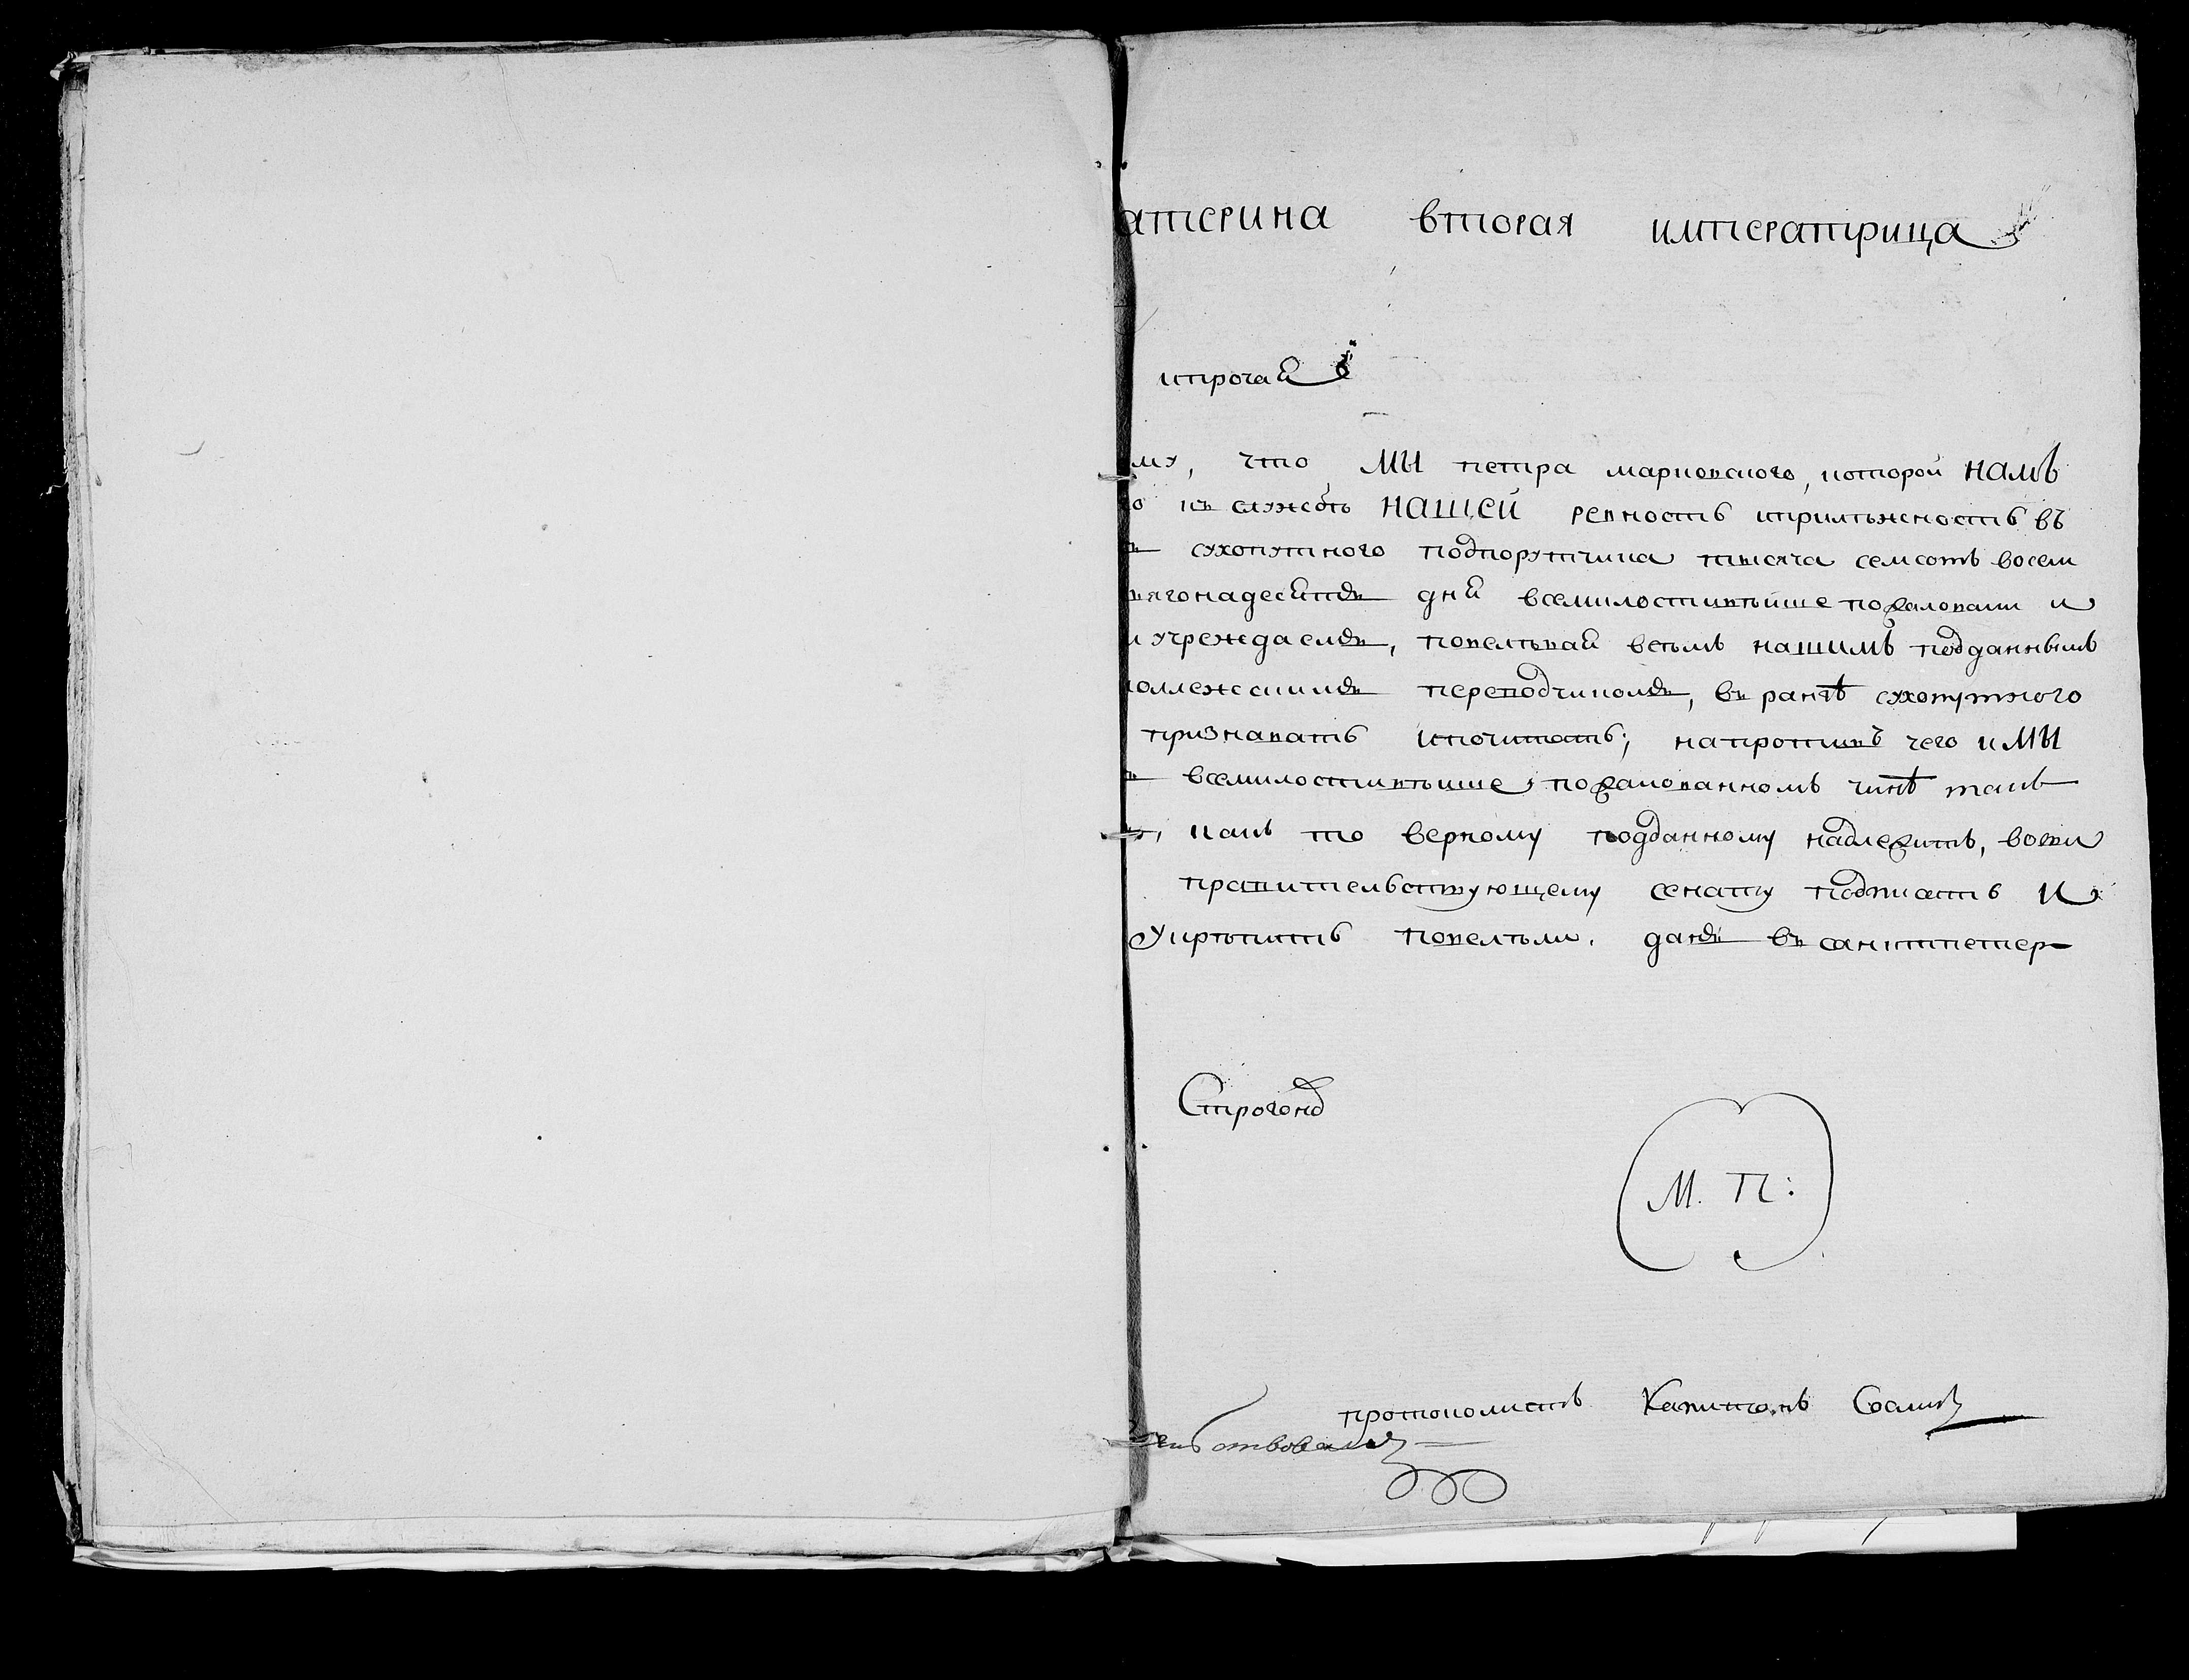 атерина вторая императрица
ипрочая
му, что МЫ петра марковского, которой НАМЪ
о къ службѣ НАШЕЙ ревность иприлѣжность въ
сухопутного подпорутчика тысяча семсотъ восем
ягонадесять дня всемилостивѣйше пожаловали и
и учреждаемъ, повелѣвая всѣмъ нашимъ подданнымъ
коллежскимъ переводчикомъ, въ рангѣ сухопутного
признавать ипочитать; напротивъ чего и МЫ
всемилостивѣйше пожалованномъ чинѣ такъ
какъ то верному подданному надлежитъ, во
правительствующему сенату подписать и
укрѣпить повелѣли. данъ въ санктпетер
Строгонов
М. П:
протоколистъ Капитонъ